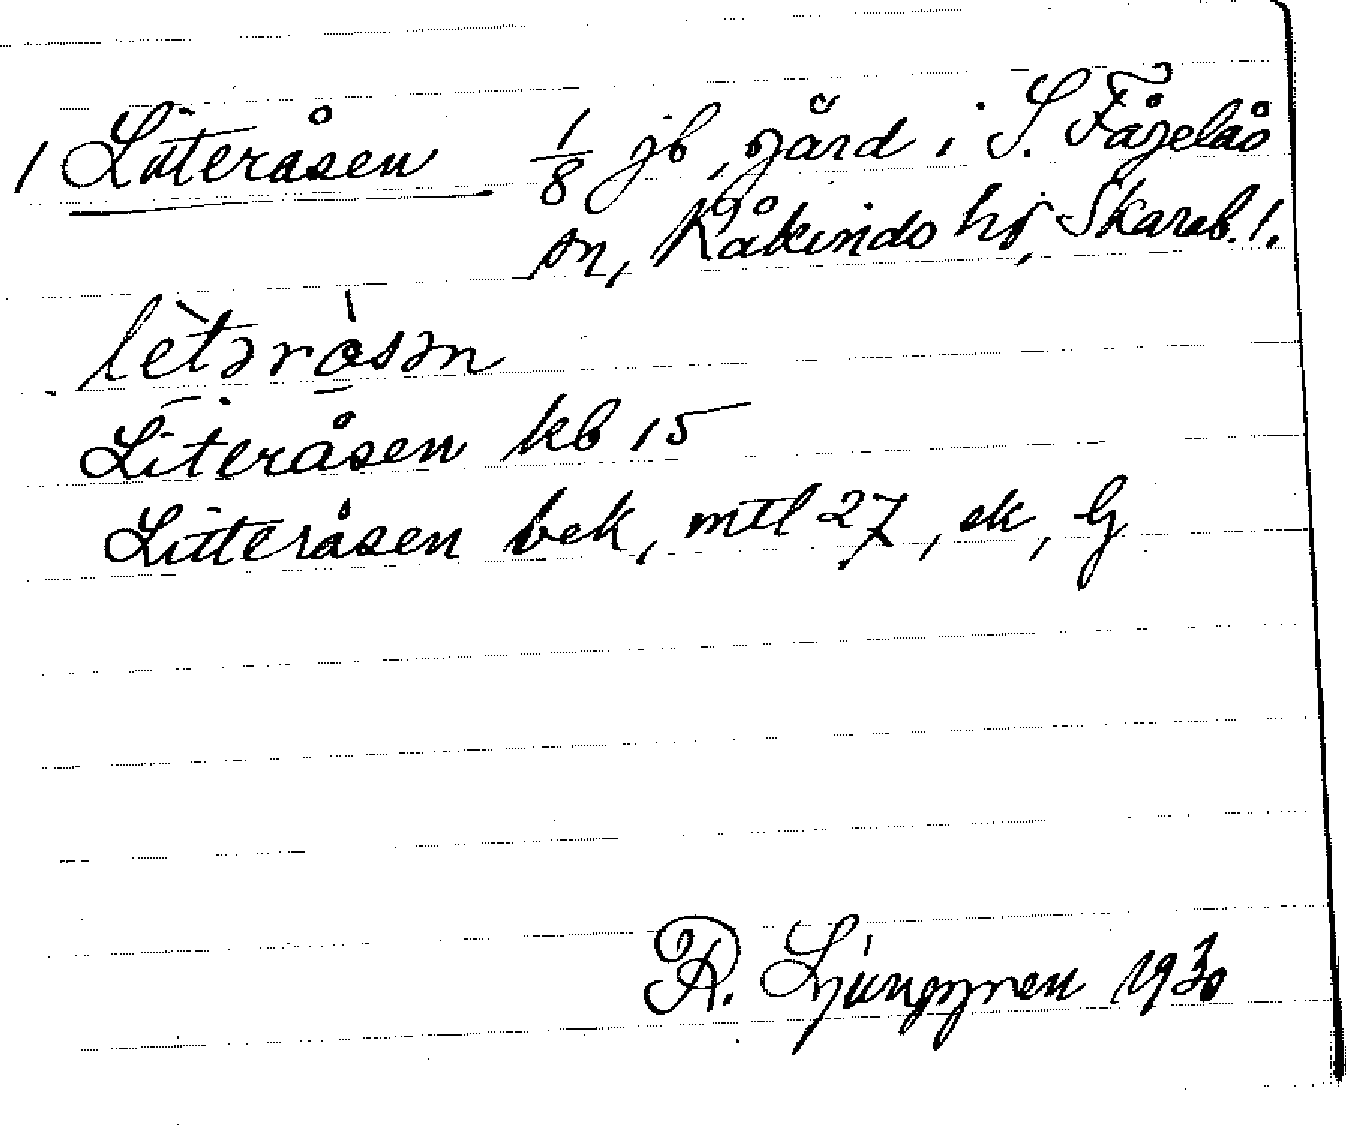 1 Literåsen 1/8 jb, gård i S. Fågelås
sn, Kåkinds hd, Skarab. l.
lètəràsən
Literåsen kb 15
Litteråsen bek, mtl 27, ek, G
R. Ljunggren 1930